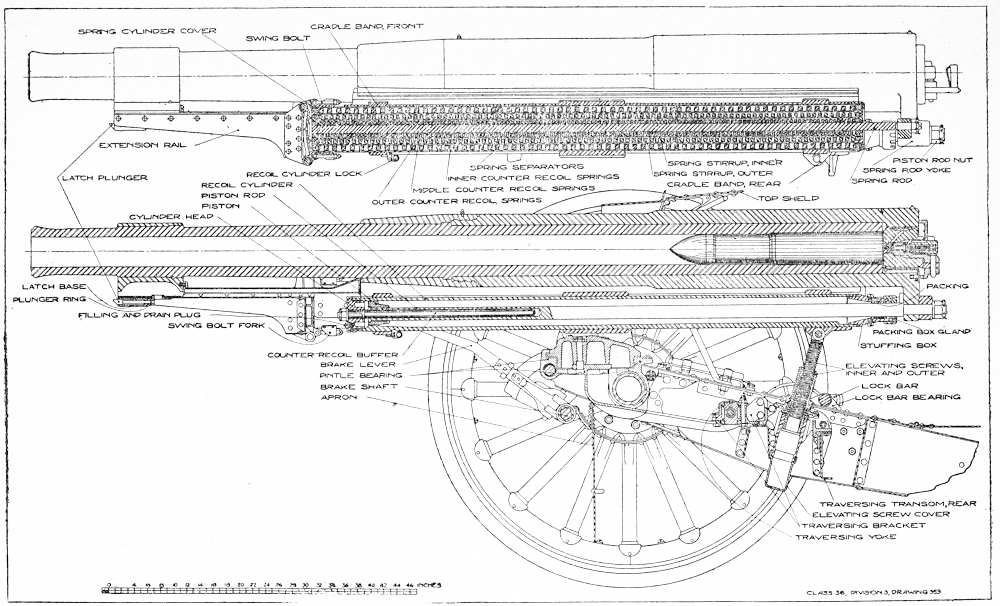 CRADLE BAND, FRONT
SPRING CYLINDER COVER
SWING BOLT
EXTENSION RAIL
LATCH PLUNGER
RECOIL CYLINDER LOCK
SPRING SEPARATORS
INNER COUNTER RECOIL SPRINGS
MIDDLE COUNTER RECOIL SPRINGS
OUTER COUNTER RECOIL SPRINGS
SPRING STIRRUP, INNER
SPRING STIRRUP, OUTER
CRADLE BAND, REAR
PISTON ROD NUT
SPRING ROD YOKE
SPRING ROD
RECOIL CYLINDER
PISTON ROD
PISTON
CYLINDER HEAD
TOP SHIELD
LATCH BASE
PLUNGER RING
FILLING AND DRAIN PLUG
SWING BOLT FORK
PACKING
PACKING BOX GLAND
STUFFING BOX
COUNTER RECOIL BUFFER
BRAKE LEVER
PINTLE BEARING
BRAKE SHAFT
APRON
ELEVATING SCREWS,
INNER AND OUTER
LOCK BAR
LOCK BAR BEARING
TRAVERSING TRANSOM, REAR
ELEVATING SCREW COVER
TRAVERSING BRACKET
TRAVERSING YOKE
0 4 6 8 10 12 14 16 18 20 22 24 26 28 30 32 34 36 38 40 42 44 46 INCHES
CLASS 36, DIVISION 3, DRAWING 353